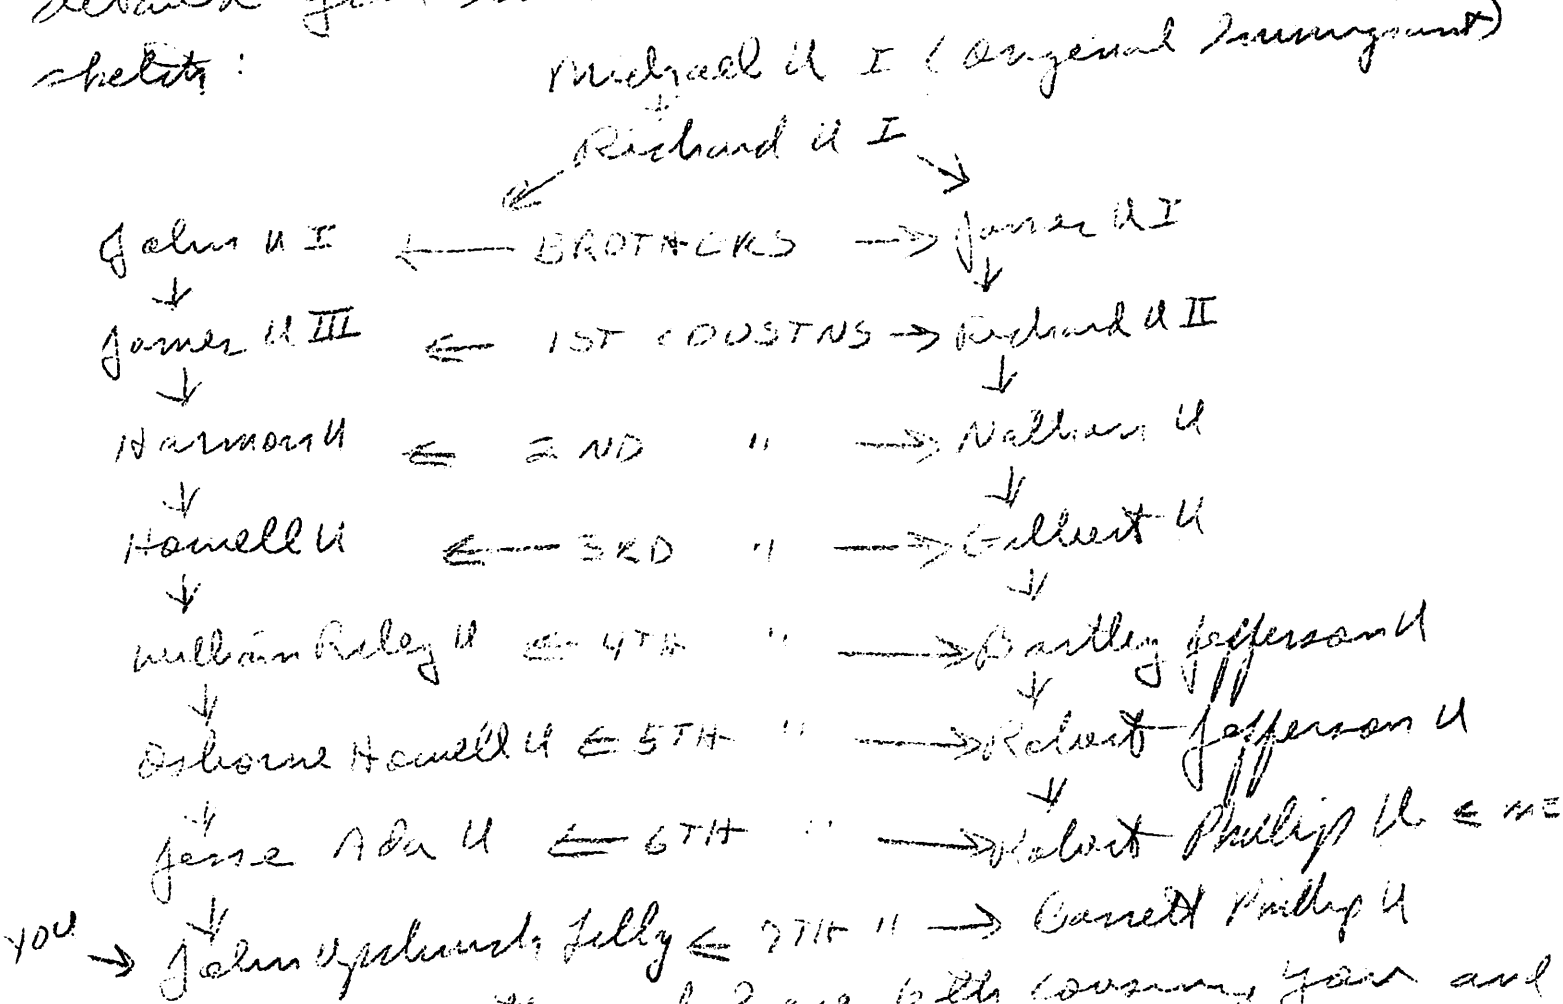 sketch:
Michael U I (Original Immigrant)
Richard U I
John U I ← BROTHERS → James U I
James U III ← 1ST COUSINS → Richard U II
Harmon U ← 2ND " → Nathan U
Howell U ← 3RD " → Gilbert U
William Riley U ← 4TH " → Bartley Jefferson U
Osborne Howell U ← 5TH " → Robert Jefferson U
Jesse Ada U ← 6TH " → Robert Phillip U ← ME
YOU → John Upchurch Lilly ← 7TH " → Garrett Phillip U
6th cousins, your and